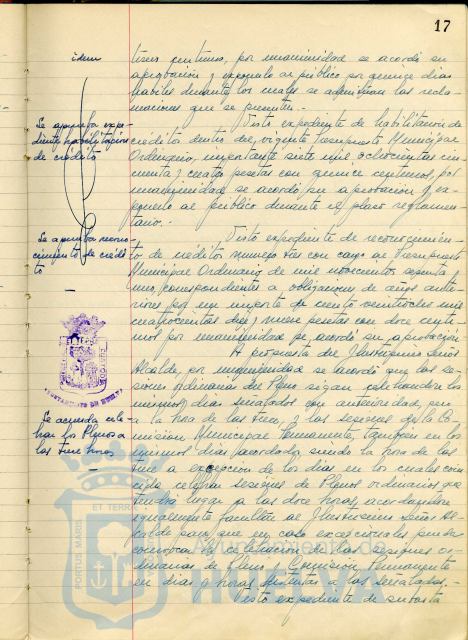 17
idem
tres centimos, por unanimidad se acordó su
aprobación y exponerlo al público por quince dias
habiles durante los cuales se admitiran las recla-
maciones que se presenten.-
Se aprueba expe-
diente habilitación
de crédito
Visto expediente de habilitación de
crédito dentro del vigente Presupuesto Municipal
Ordinario, importante siete mil ochocientas cin-
cuenta y cuatro pesetas con quince centimos, por
unanimidad se acordó su aprobación y ex-
ponerlo al público durante el plazo reglamen-
tario.-
Se aprueba recono-
cimiento de crédi-
to
Visto expediente de reconocimien-
to de créditos numero tres con cargo al Presupuesto
Municipal Ordinario de mil novecientos setenta y
uno, correspondientes a obligaciones de años ante-
riores por un importe de ciento veintiocho mil
cuatrocientas diez y nueve pesetas con doce centi-
mos por unanimidad se acordó su aprobación.
A propuesta del Ilustrisimo Señor
Alcalde, por unanimidad se acordó que las se-
siones ordinarias del Pleno sigan celebrandose los
mismos dias señalados con anterioridad, pero
a la hora de las trece, y las sesiones de la Co-
mision Municipal Permanente, tambien en los
mismos dias acordados, siendo la hora de las
trece a excepción de los dias en los cuales coin-
cida celebrar sesiones de Plenos ordinarios que
tendrá lugar a las doce horas, acordandose
igualmente facultar al Ilustrisimo Señor Al-
calde para que en caso excepcionales pueda
convocar la celebración de las sesiones or-
dinarias de Pleno y Comision Permanente
en dias y horas distintas a los señalados.-
Visto expediente de subasta
Se acuerda cele-
brar los Plenos a
las trece horas
AYUNTAMIENTO DE HUELVA
PORTUS MARIS ET TERR
Ayuntamiento de
HUELVA